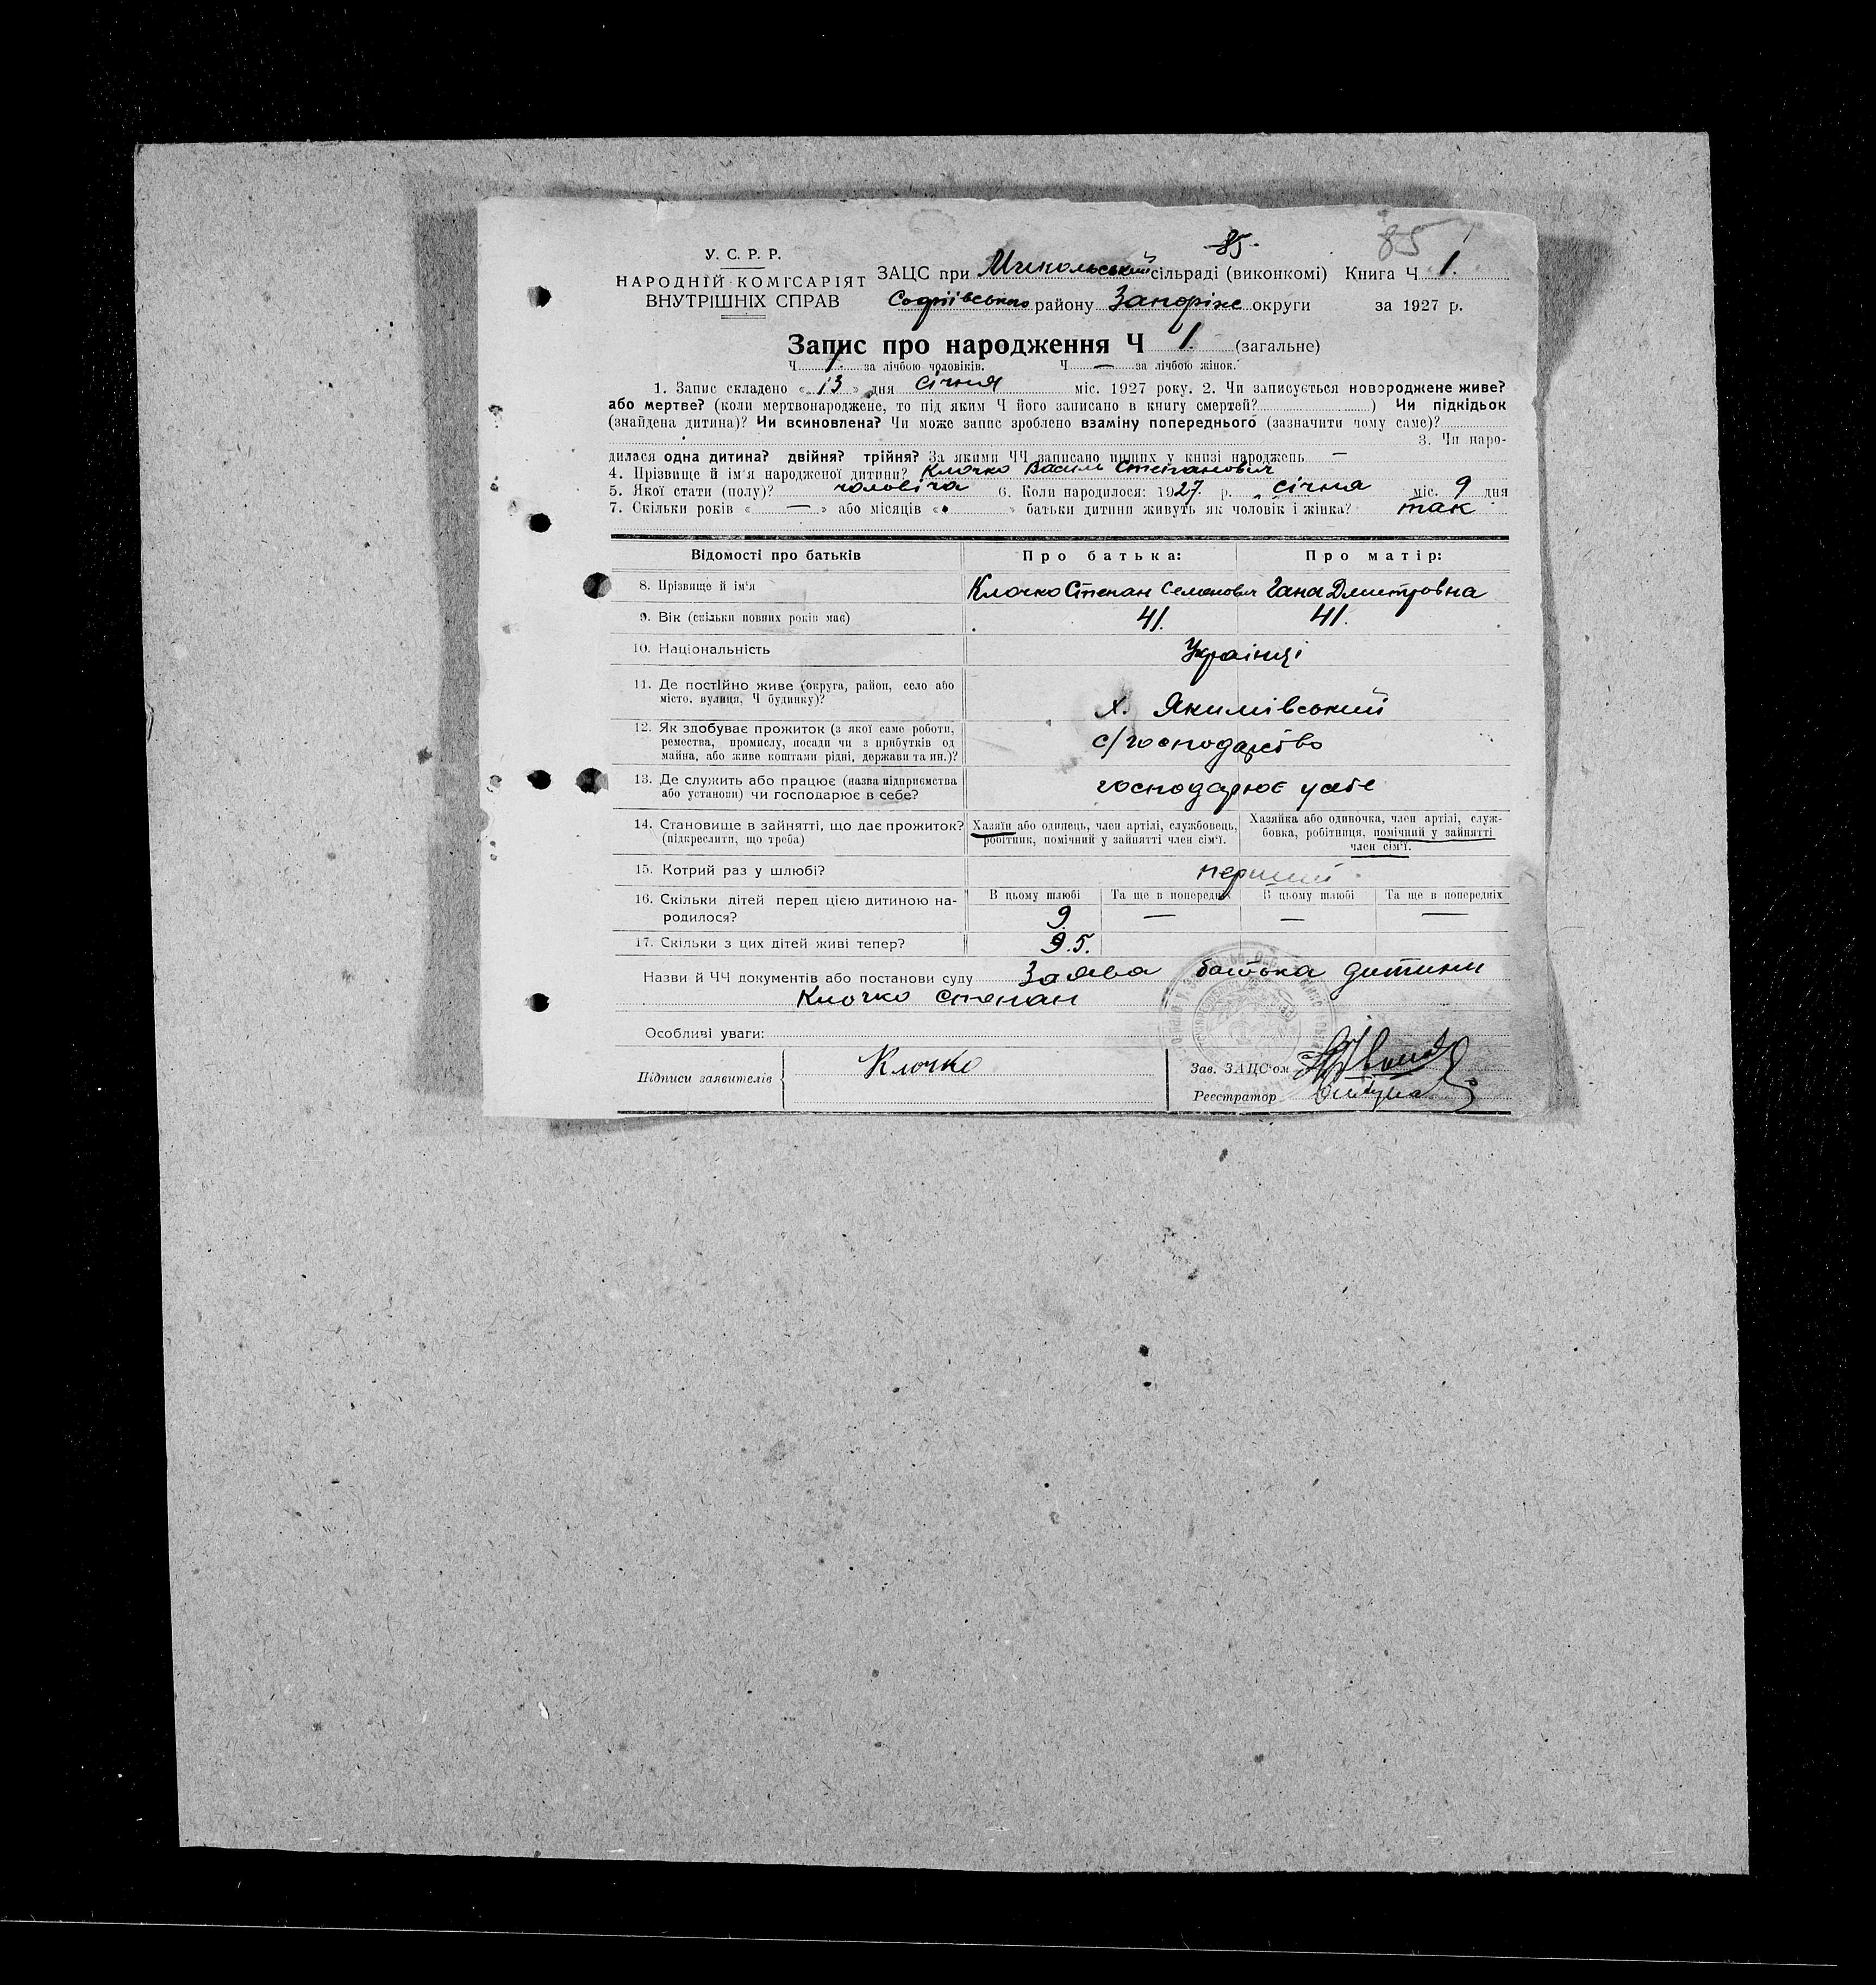 85 1
85.
У. С. Р. Р.
НАРОДНІЙ КОМІСАРІЯТ
ВНУТРІШНІХ СПРАВ
ЗАЦС при Микольський сільраді (виконкомі) Книга Ч 1.
Софіївського району Запоріже округи за 1927 р.
Запис про народження Ч 1. (загальне)
Ч 1. за лічбою чоловіків. Ч — за лічбою жінок.
1. Запис складено « 13 » дня січня міс. 1927 року. 2. Чи записується новороджене живе?
або мертве? (коли мертвонароджене, то під яким Ч його записано в книгу смертей? ) Чи підкідьок
(знайдена дитина)? Чи всиновлена? Чи може запис зроблено взаміну попереднього (зазначити чому саме)?
3. Чи наро-
дилася одна дитина? двійня? трійня? За якими ЧЧ записано инших у книзі народжень —
4. Прізвище й ім'я народженої дитини? Клочко Василь Степанович
5. Якої стати (полу)? чоловіча 6. Коли народилося: 1927. р. січня міс. 9 дня
7. Скільки років « — » або місяців « » батьки дитини живуть як чоловік і жінка? так
Відомості про батьків Про батька: Про матір:
8. Прізвище й ім'я Клочко Степан Семенович Гана Дмитровна
9. Вік (скільки повних років має) 41. 41.
10. Національність Українці
11. Де постійно живе (округа, район, село або
місто, вулиця, Ч будинку)? х. Якимівський
12. Як здобуває прожиток (з якої саме роботи,
ремества, промислу, посади чи з прибутків од
майна, або живе коштами рідні, держави та ин.)? с/господарство
13. Де служить або працює (назва підприємства
або установи) чи господарює в себе? господарює у себе
14. Становище в зайнятті, що дає прожиток?
(підкреслити, що треба)
Хазяїн або одинець, член артілі, службовець,
робітник, помічний у зайнятті член сім'ї.
Хазяйка або одиночка, член артілі, служ-
бовка, робітниця, помічний у зайнятті
член сім'ї.
15. Котрий раз у шлюбі? перший
16. Скільки дітей перед цією дитиною на-
родилося?
В цьому шлюбі Та ще в попередніх В цьому шлюбі Та ще в попередніх
9 — — —
17. Скільки з цих дітей живі тепер? 9.5.
Назви й ЧЧ документів або постанови суду Заява батька дитини
Клочко Степан
Особливі уваги:
Підписи заявителів Клочко
Зав. ЗАЦС'ом
Реєстратор